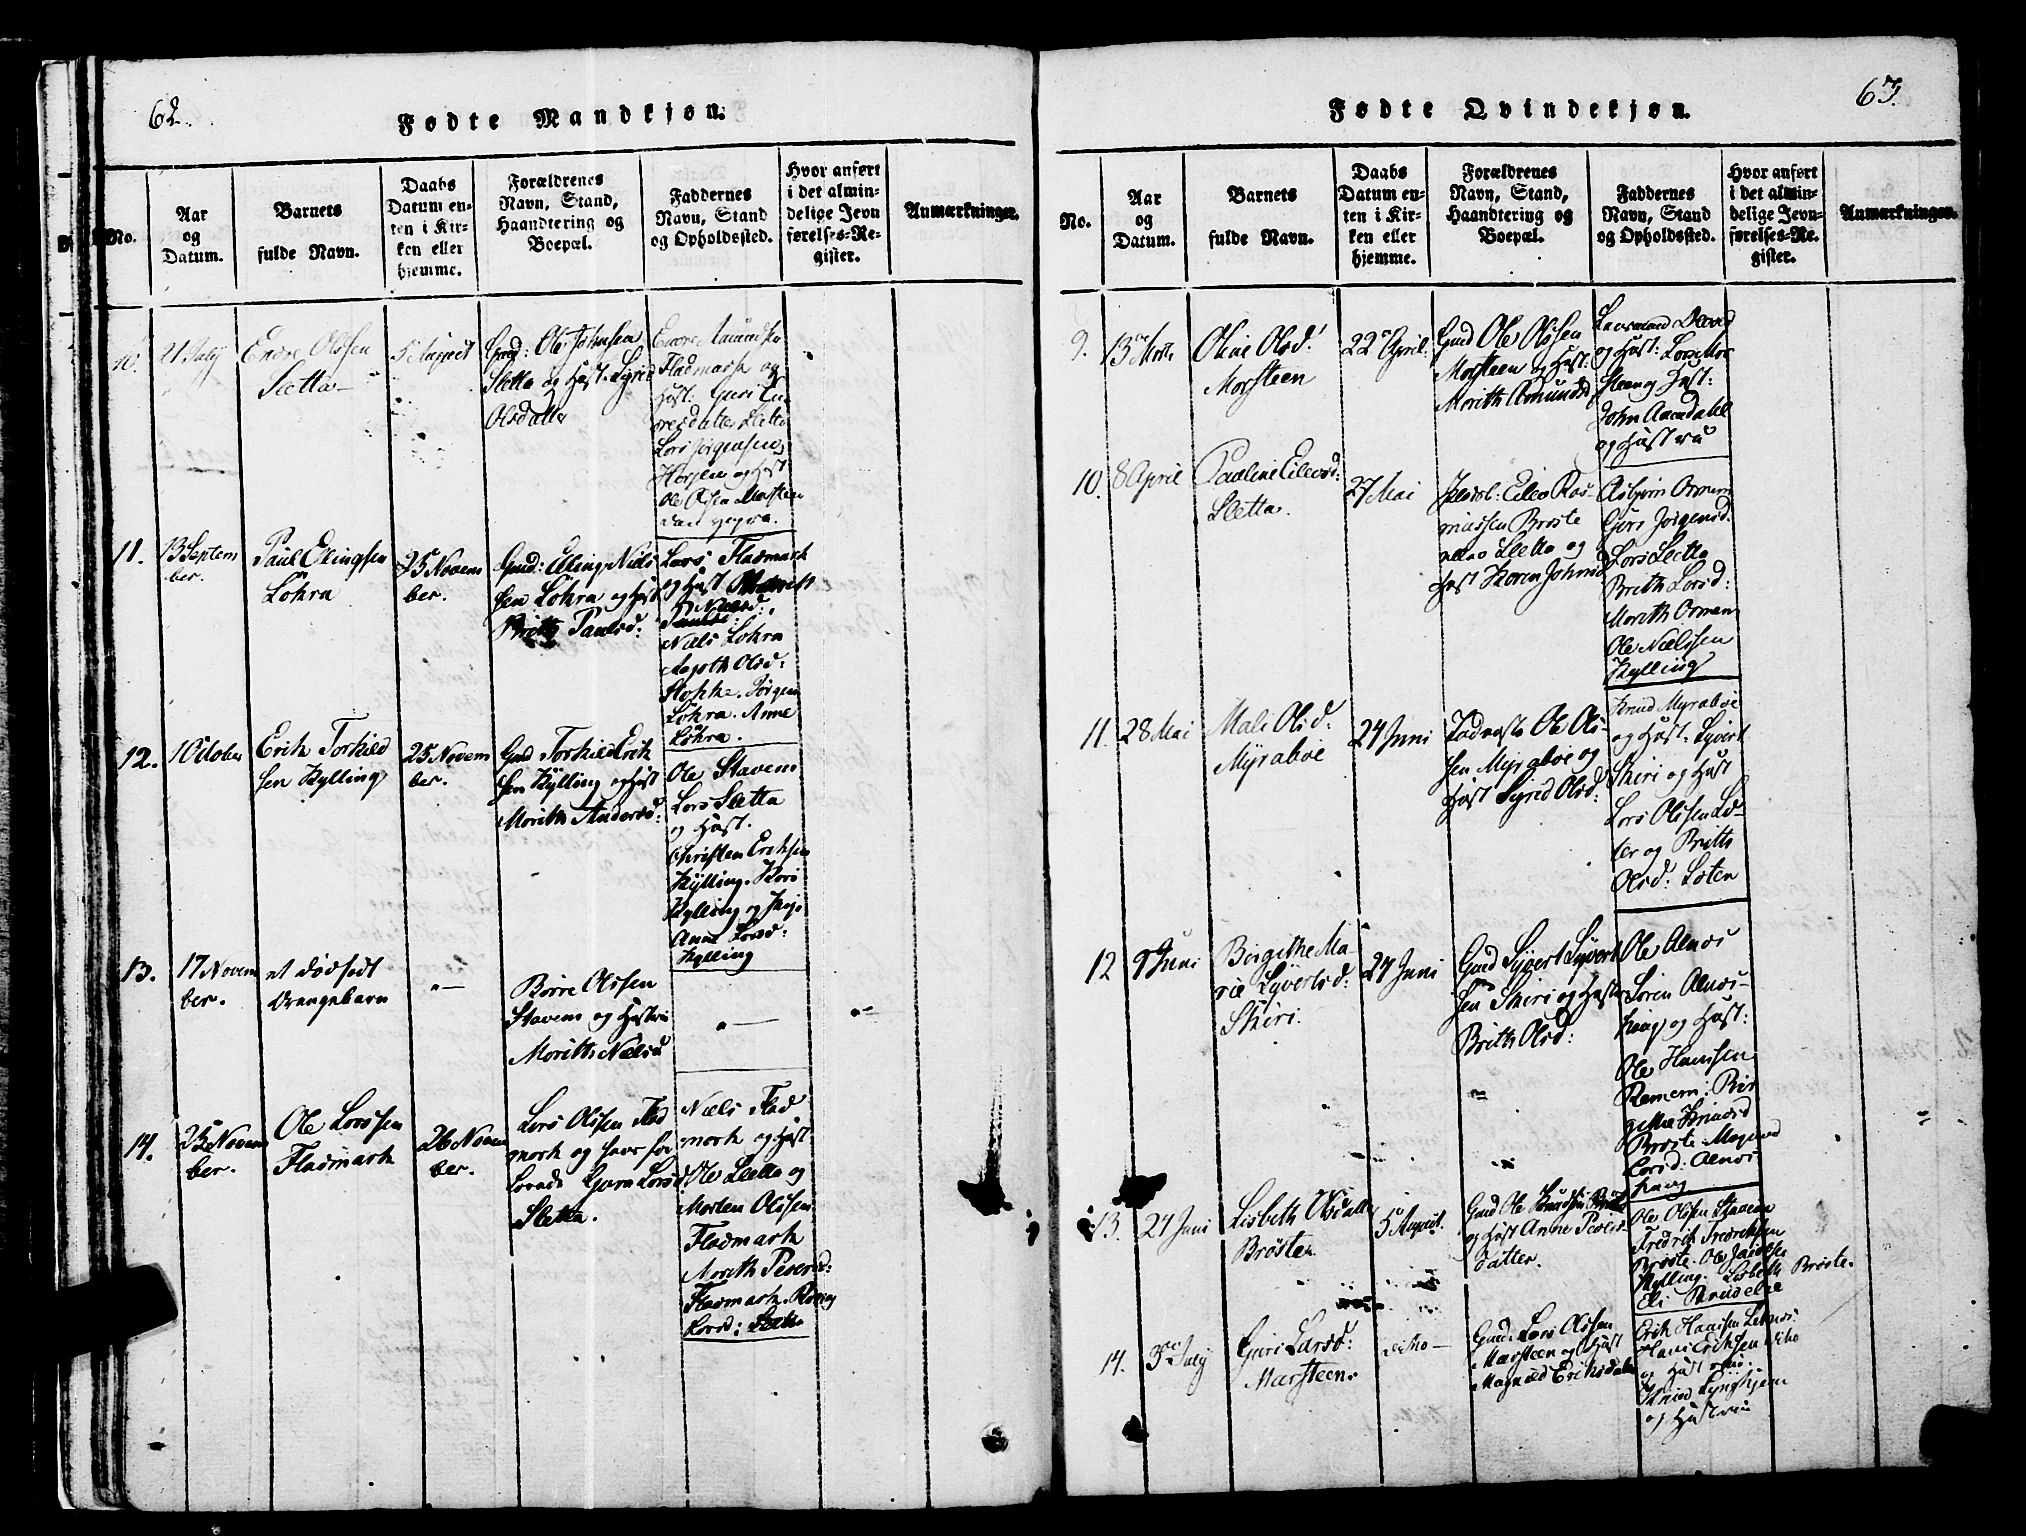 62.
Fødte Mandkjøn.
No.
Aar
og
Datum.
Barnets
fulde Navn.
Daabs
Datum en-
ten i Kir-
ken eller
hjemme.
Forældrenes
Navn, Stand,
Haandtering og
Boepæl.
Faddernes
Navn, Stand
og Opholdssted.
Hvor anført
i det almin-
delige Jevn
førelses-Re-
gister.
Anmærkninger.
10.
21 July
Endre Olssen
Sletta
5 August
Gmd: Ole Johnsen
Sletta og Hust. Sÿrid
Olsdatter
Fladmark og
Hust: Guri
Sletta
Lars Jørgensen
og Hust
11.
13 Septem
ber.
Paul Elingsen
Løhra
25 Novem
ber.
Gmd: Elling Niels
sen Løhra og Hust
Britth Paulsd:
Lars Fladmark
og Hust
Nielsd:
Niels Løhra
Olsd:
Jørgen
Løhra. Anne
Løhra.
12.
1 October
Erik Torkild
sen Kylling
25 Novem
ber.
Gmd Torkild Erik
sen Kylling og Hust
Morith Andersd:
Ole Stavem
Lars Sletta
og Hust.
Christen Eriksen
Kylling. Kari
Kylling og
Anne Larsd:
Kylling
13.
17 Novem
ber.
et dødfødt
Drengebarn
Børre Olssen
Stavem og Hustru
Morith Nielsd
14.
25 Novem
ber.
Ole Larssen
Fladmark
26 Novem
ber.
Lars Olssen Flad
mark og
Larsd
Sletta.
Niels Flad
mark og Hust
Ole Sletta og
Morten Olssen
Fladmark
Morith Pedersd:
Fladmark.
Larsd: Sletta
63.
Fødte Qvindekjøn.
No.
Aar
og
Datum.
Barnets
fulde Navn.
Daabs
Datum en-
ten i Kir-
ken eller
hjemme.
Forældrenes
Navn, Stand,
Haandtering og
Boepæl.
Faddernes
Navn, Stand
og Opholdssted.
Hvor anført
i det almin-
delige Jevn-
førelses-Re-
gister.
Anmærkninger.
9.
13de Marts
Oline Olsd:
Marsteen
22de April
Gmd Ole Olssen
Marsteen og Hust:
Morith Amundsd
og Hust: Lars Mar
steen og Hust:
John
og Hustru
10.
8 April
Pauline Eilevsd:
Sletta.
27 Mai
Eilev Ras-
mussen Brøste
Sletta og
Hust Karen Johnsd
Asbjørn Ormem
Guri Jørgensd.
Lars Sletta
Brith Larsd:
Morith Ormem
Ole Nielssen
Kylling
11.
28 Mai
Mali Olsd:
Myraboe
24 Juni
Ole Ols
sen Myraboe og
Hust Sÿrid Olsd:
Knud Myraboe
og Hust. Syvert
Skiri og Hust
Lars Olssen
og Britth
Olsd:
12
9 Juni
Birgithe Ma
rie Syvertsd:
Skiri.
24 Juni
Gmd Syvert Syvert
sen Skiri og Hustru
Brith Olsd:
Ole Alnæs
Søren Alnæs-
houg og Hust:
Ole Hanssen
Remem: Bir
githe Knudsd
Brøste. Magnild
Larsd: Alnæs-
houg
13.
24 Juni
Lisbeth Olsdatter
Brøsten
5 August.
Gmd Ole Knudsen Brøste
og Hust Anne Peders-
datter.
Ole Olssen Stavem
Fredrik Fredriksen
Brøste. Ole
Kylling. Lisbeth Brøste.
14.
3de July
Guri Larsd:
Marsteen.
Gmd. Lars Olssen
Marsteen og Hust
Magnild Eriksdatter
Erik Hanssen
Hans Eriksen
og Hustru.
Knud
og Hustru